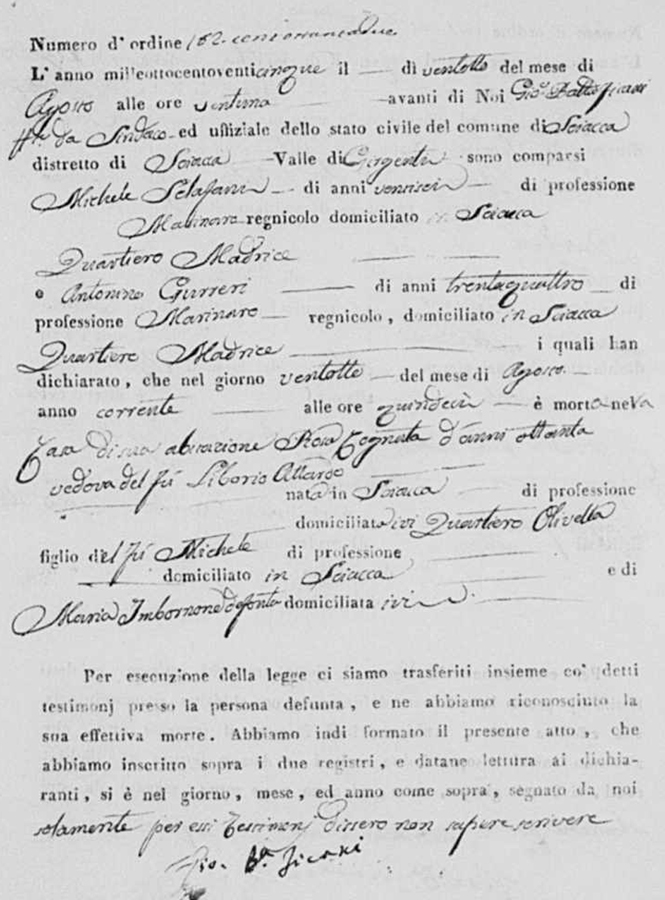 Numero d'ordine 182. centottantadue
L'anno mill'eottocentoventicinque il — dì ventotto del mese di
Agosto alle ore ventuna — avanti di Noi Gio: Batta
ff.ni da Sindaco ed uffiziale dello stato civile del comune di Sciacca
distretto di Sciacca — Valle di Girgenti sono comparsi
Michele Sclafani — di anni ventisei — di professione
Marinaro regnicolo domiciliato in Sciacca
Quartiero Madrice
e Antonino Gurreri — di anni trentaquattro — di
professione Marinaro — regnicolo, domiciliato in Sciacca
Quartiero Madrice — i quali han
dichiarato, che nel giorno ventotto — del mese di Agosto —
anno corrente — alle ore quindeci — è morta nella
Casa di sua abitazione Rosa Cognata d'anni ottanta
vedova del fù Liborio Attardo
nata in Sciacca — di professione
— domiciliata ivi Quartiero Olivella
figlio del fù Michele di professione —
— domiciliato in Sciacca — e di
Maria Imbornone defonta domiciliata ivi —
Per esecuzione della legge ci siamo trasferiti insieme co' detti
testimonj presso la persona defunta, e ne abbiamo riconosciuto la
sua effettiva morte. Abbiamo indi formato il presente atto, che
abbiamo inscritto sopra i due registri, e datane lettura ai dichia-
ranti, si è nel giorno, mese, ed anno come sopra, segnato da noi
solamente per essi Testimonj dissero non sapere scrivere
Gio. B.a